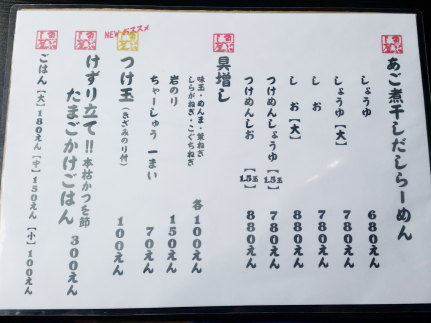 あご煮干しだしらーめん
しょうゆ 680えん
しょうゆ【大】 780えん
しお 680えん
しお【大】 780えん
つけめんしょうゆ【1.5玉】 780えん
つけめんしお【1.5玉】 880えん
具増し
味玉・めんま・葉ねぎ
しらがねぎ・こぐちねぎ 各100えん
岩のり 150えん
ちゃーしゅう 一まい 70えん
NEW おススメ
つけ玉(きざみのり付) 100えん
けずり立て!!本枯かつを節
たまごかけごはん 300えん
ごはん【大】180えん【中】150えん【小】100えん